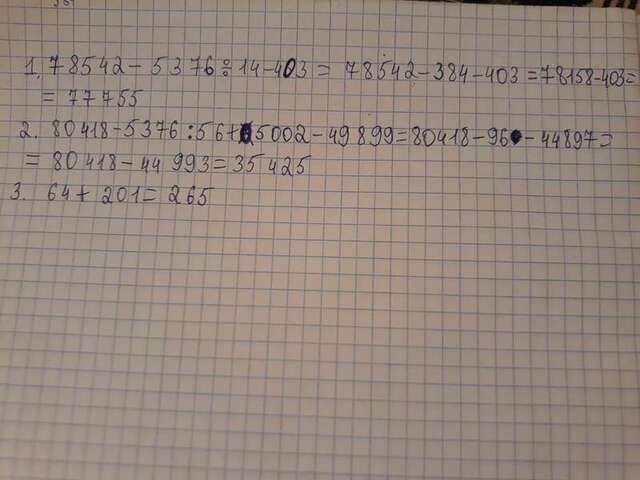 1. 78542 - 5376 ÷ 14 - 403 = 78542 - 384 - 403 = 78158 - 403 =
= 77755
2. 80418 - 5376 : 56 + 5002 - 49899 = 80418 - 96 - 44897 =
= 80418 - 44993 = 35425
3. 64 + 201 = 265